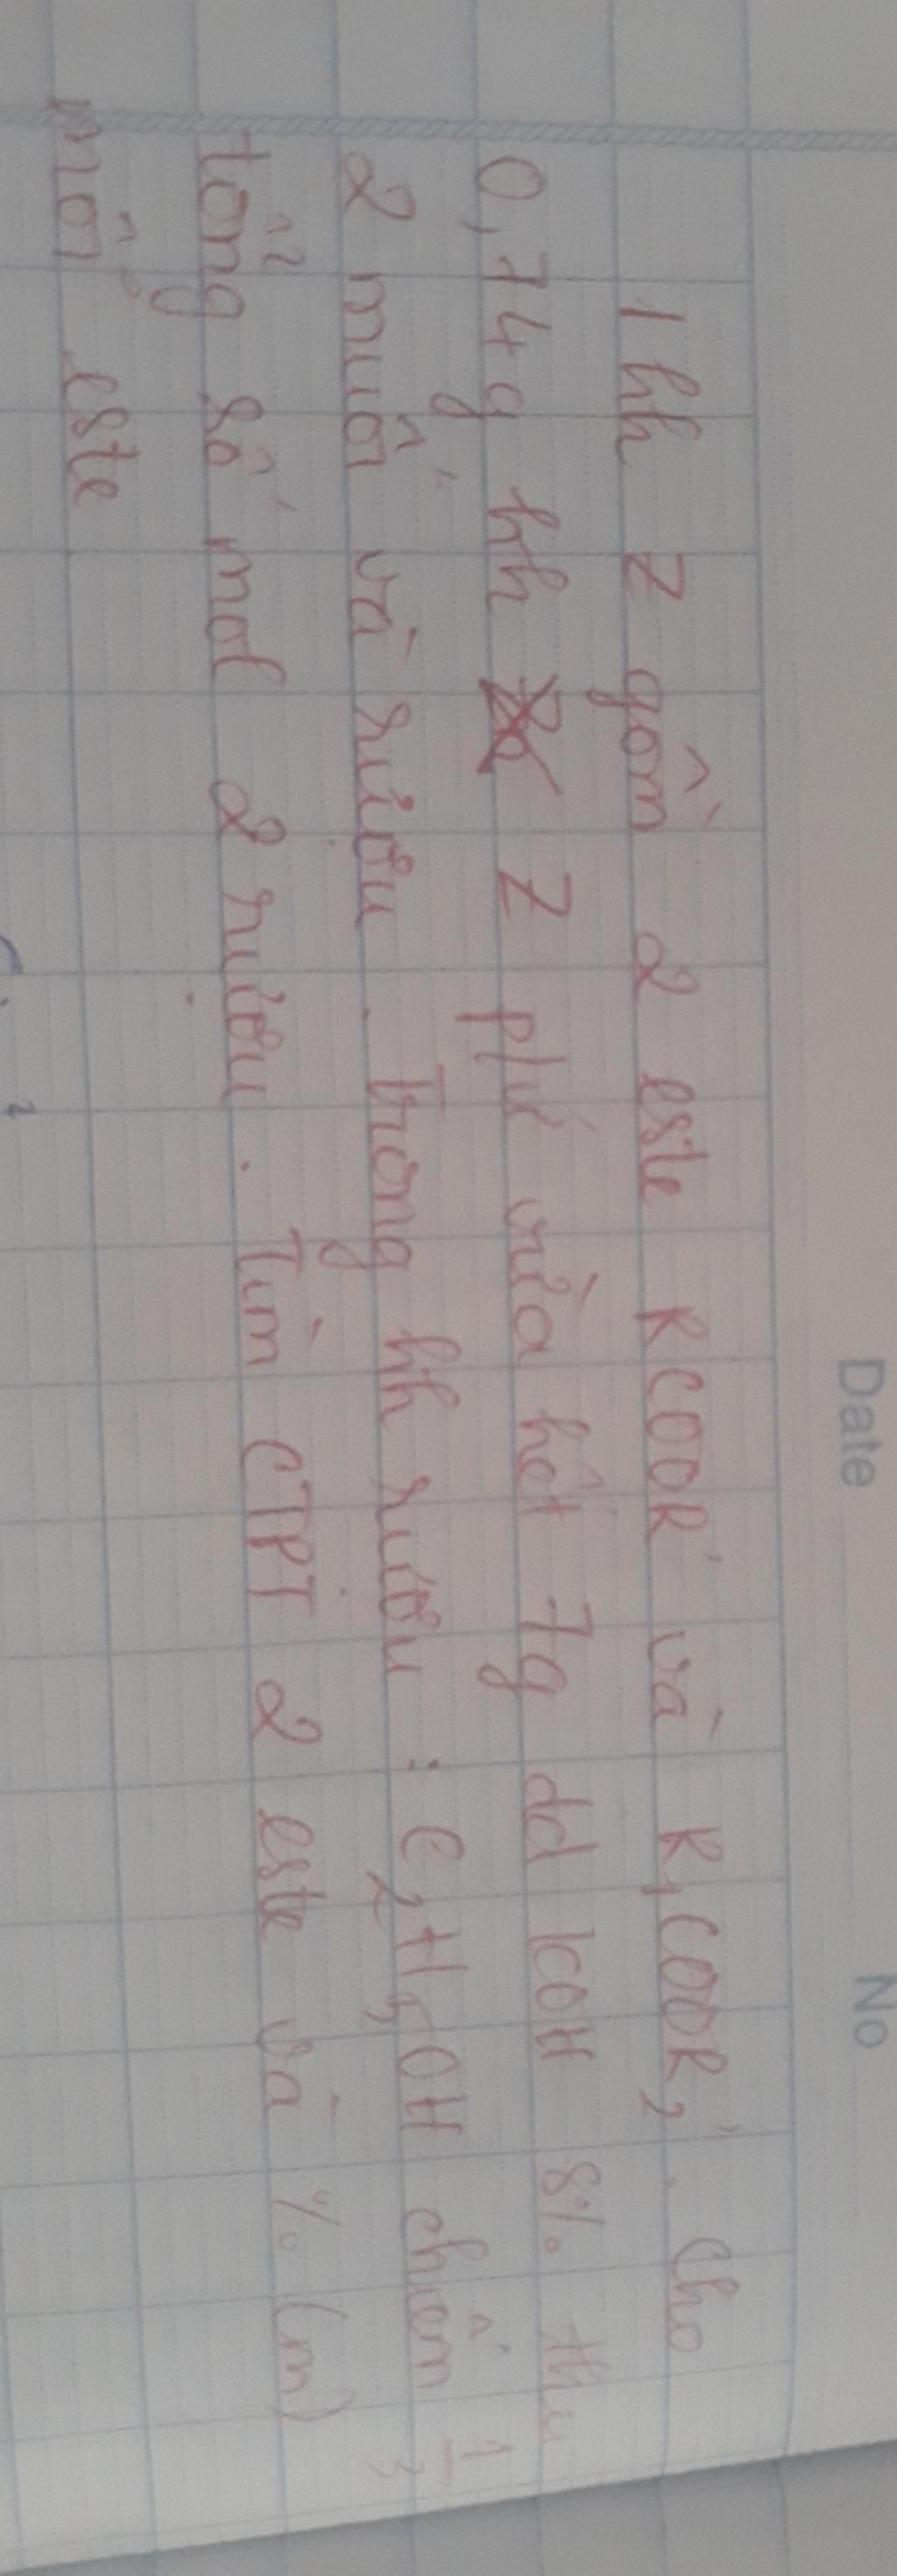 Date No
1 hh Z gồm 2 este RCOOR' và R₁COOR₁'. Cho
0,74g hh Z pứ vừa hết 7g dd KOH 8% thu
2 muối và rượu. Trong hh rượu : C₂H₅OH chiếm 1/3
tổng số mol 2 rượu. Tìm CTPT 2 este và % (m)
mỗi este